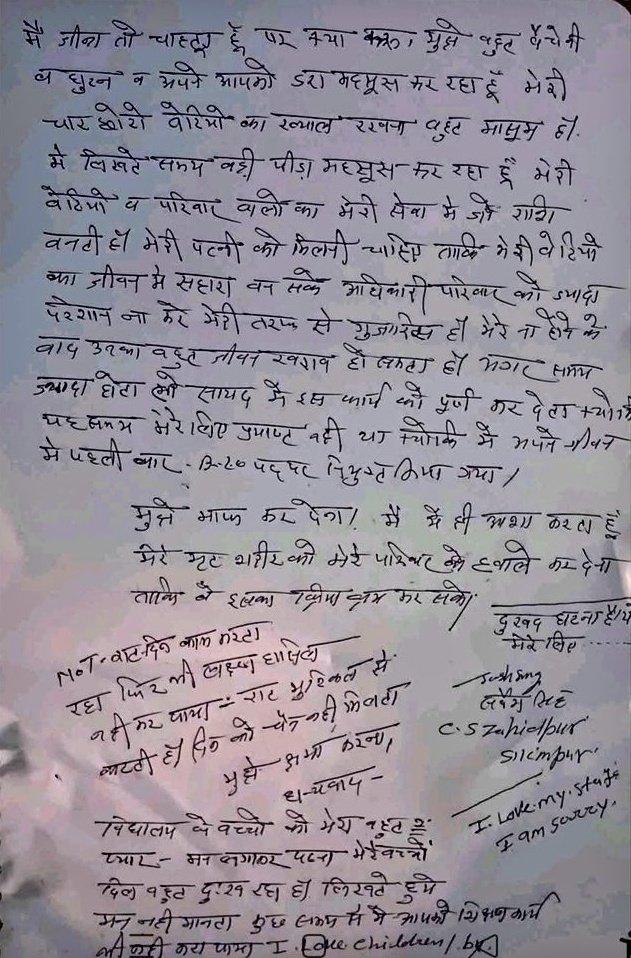 मै जीना तो चाहता हूँ पर क्या करू, मुझे बहुत बैचेनी
व घुटन व अपने आपको डरा महसूस कर रहा हूँ मेरी
चार छोटी बेटियो का ख्याल रखना बहुत मासूम हो.
मै लिखते समय बडी पीड़ा महसूस कर रहा हूँ मेरी
बेटियो व परिवार वालो का मेरी सेवा मे जो राशि
बनती हो मेरी पत्नी को मिलनी चाहिए ताकि मेरी बेटियो
का जीवन मे सहारा बन सके अधिकारी परिवार को ज्यादा
परेशान ना करे मेरी तरफ से गुजारिस हो मेरे ना होने के
बाद उनका बहुत जीवन खराब हो सकता हो अगर समय
ज्यादा होता तो सायद मै इस कार्य को पूर्ण कर देता क्योकि
यह समय मेरे लिए प्रयाप्त नही था क्योकि मै अपने जीवन
मे पहली बार - B.L.O पद पर नियुक्त किया गया।
मुझे माफ कर देना। मै ये ही आशा करता हूँ
मेरे मृत शरीर को मेरे परिवार के हवाले कर देना
ताकि वे इसका क्रम कर सके।
दुखद घटना है ये
मेरे लिए
NoT- रात-दिन काम करता
रहा फिर भी लक्ष्य हासिल
नही कर पाया - रात मुश्किल से
काटती हो दिन को चैन नही मिलता
मुझे क्षमा करना,
धन्यवाद -
सर्वेश सिंह
C.S Zahidpur
Silimpur.
I. Love. my. staff
I am sorry.
विद्यालय के बच्चो को मेरा बहुत २
प्यार - मन लगाकर पढना मेरे बच्चों
दिल बहुत दुःख रहा हो लिखते हुये
मन नही मानता कुछ समय से मै आपको शिक्षण कार्य
भी नही करा पाया I. Love children / by